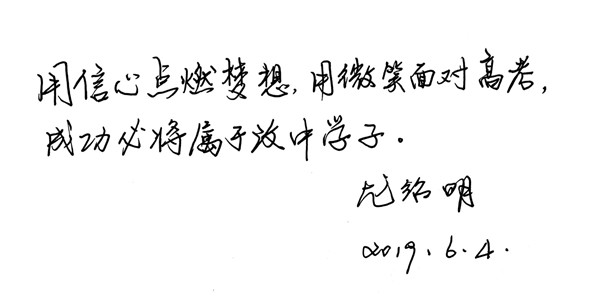 用信心点燃梦想,用微笑面对高考,
成功必将属于中学子。
绍明
2019.6.4.